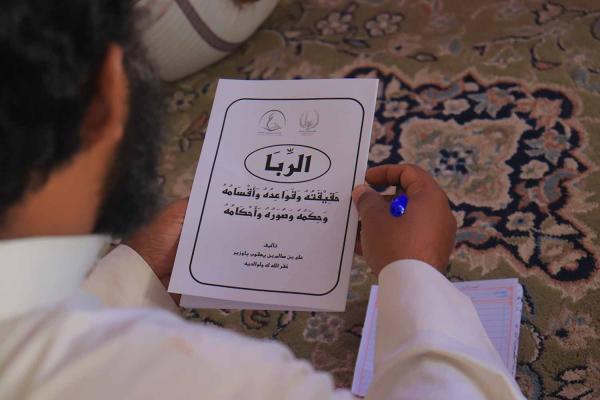 الرِّبَا
حَقِيْقَتُهُ وَقَوَاعِدُهُ وَأَقْسَامُهُ
وَحِكَمُهُ وَصُوَرُهُ وَأَحْكَامُهُ
تأليف
علي بن سالم بن يعقوب باوزير
غفر الله له ولوالديه